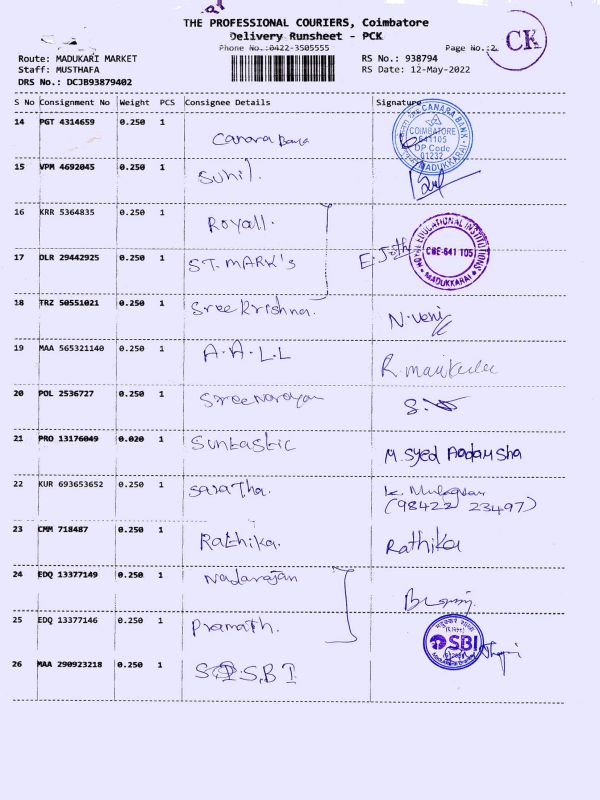 THE PROFESSIONAL COURIERS, Coimbatore
Delivery Runsheet - PCK
Phone No.:0422-3505555
Page No.:2
CK
Route: MADUKARI MARKET
RS No.: 938794
Staff: MUSTHAFA
RS Date: 12-May-2022
DRS No.: DCJB93879402
S No Consignment No Weight PCS Consignee Details Signature
14 PGT 4314659 0.250 1 Canara Bank
CANARA BANK
COIMBATORE
641105
DP Code
01232
MADUKKARAI
15 VPM 4692045 0.250 1 Sunil.
16 KRR 5364835 0.250 1 Royall.
17 DLR 29442925 0.250 1 ST. MARK's E. Joth
EDUCATIONAL INSTITUTIONS
CBE-641 105
MADUKKARAI
18 TRZ 50551021 0.250 1 Sree Krishna. N. Veni
19 MAA 565321140 0.250 1 A.A.L.L R.
20 POL 2536727 0.250 1 Sree Narayan S.
21 PRO 13176049 0.020 1 Suntastic M. Syed Aadamsha
22 KUR 693653652 0.250 1 Saratha. K.
(98422 23497)
23 CMM 718487 0.250 1 Rathika. Rathika
24 EDQ 13377149 0.250 1 Nadarajan
25 EDQ 13377146 0.250 1 Pramath.
SBI
26 MAA 290923218 0.250 1 S.B I